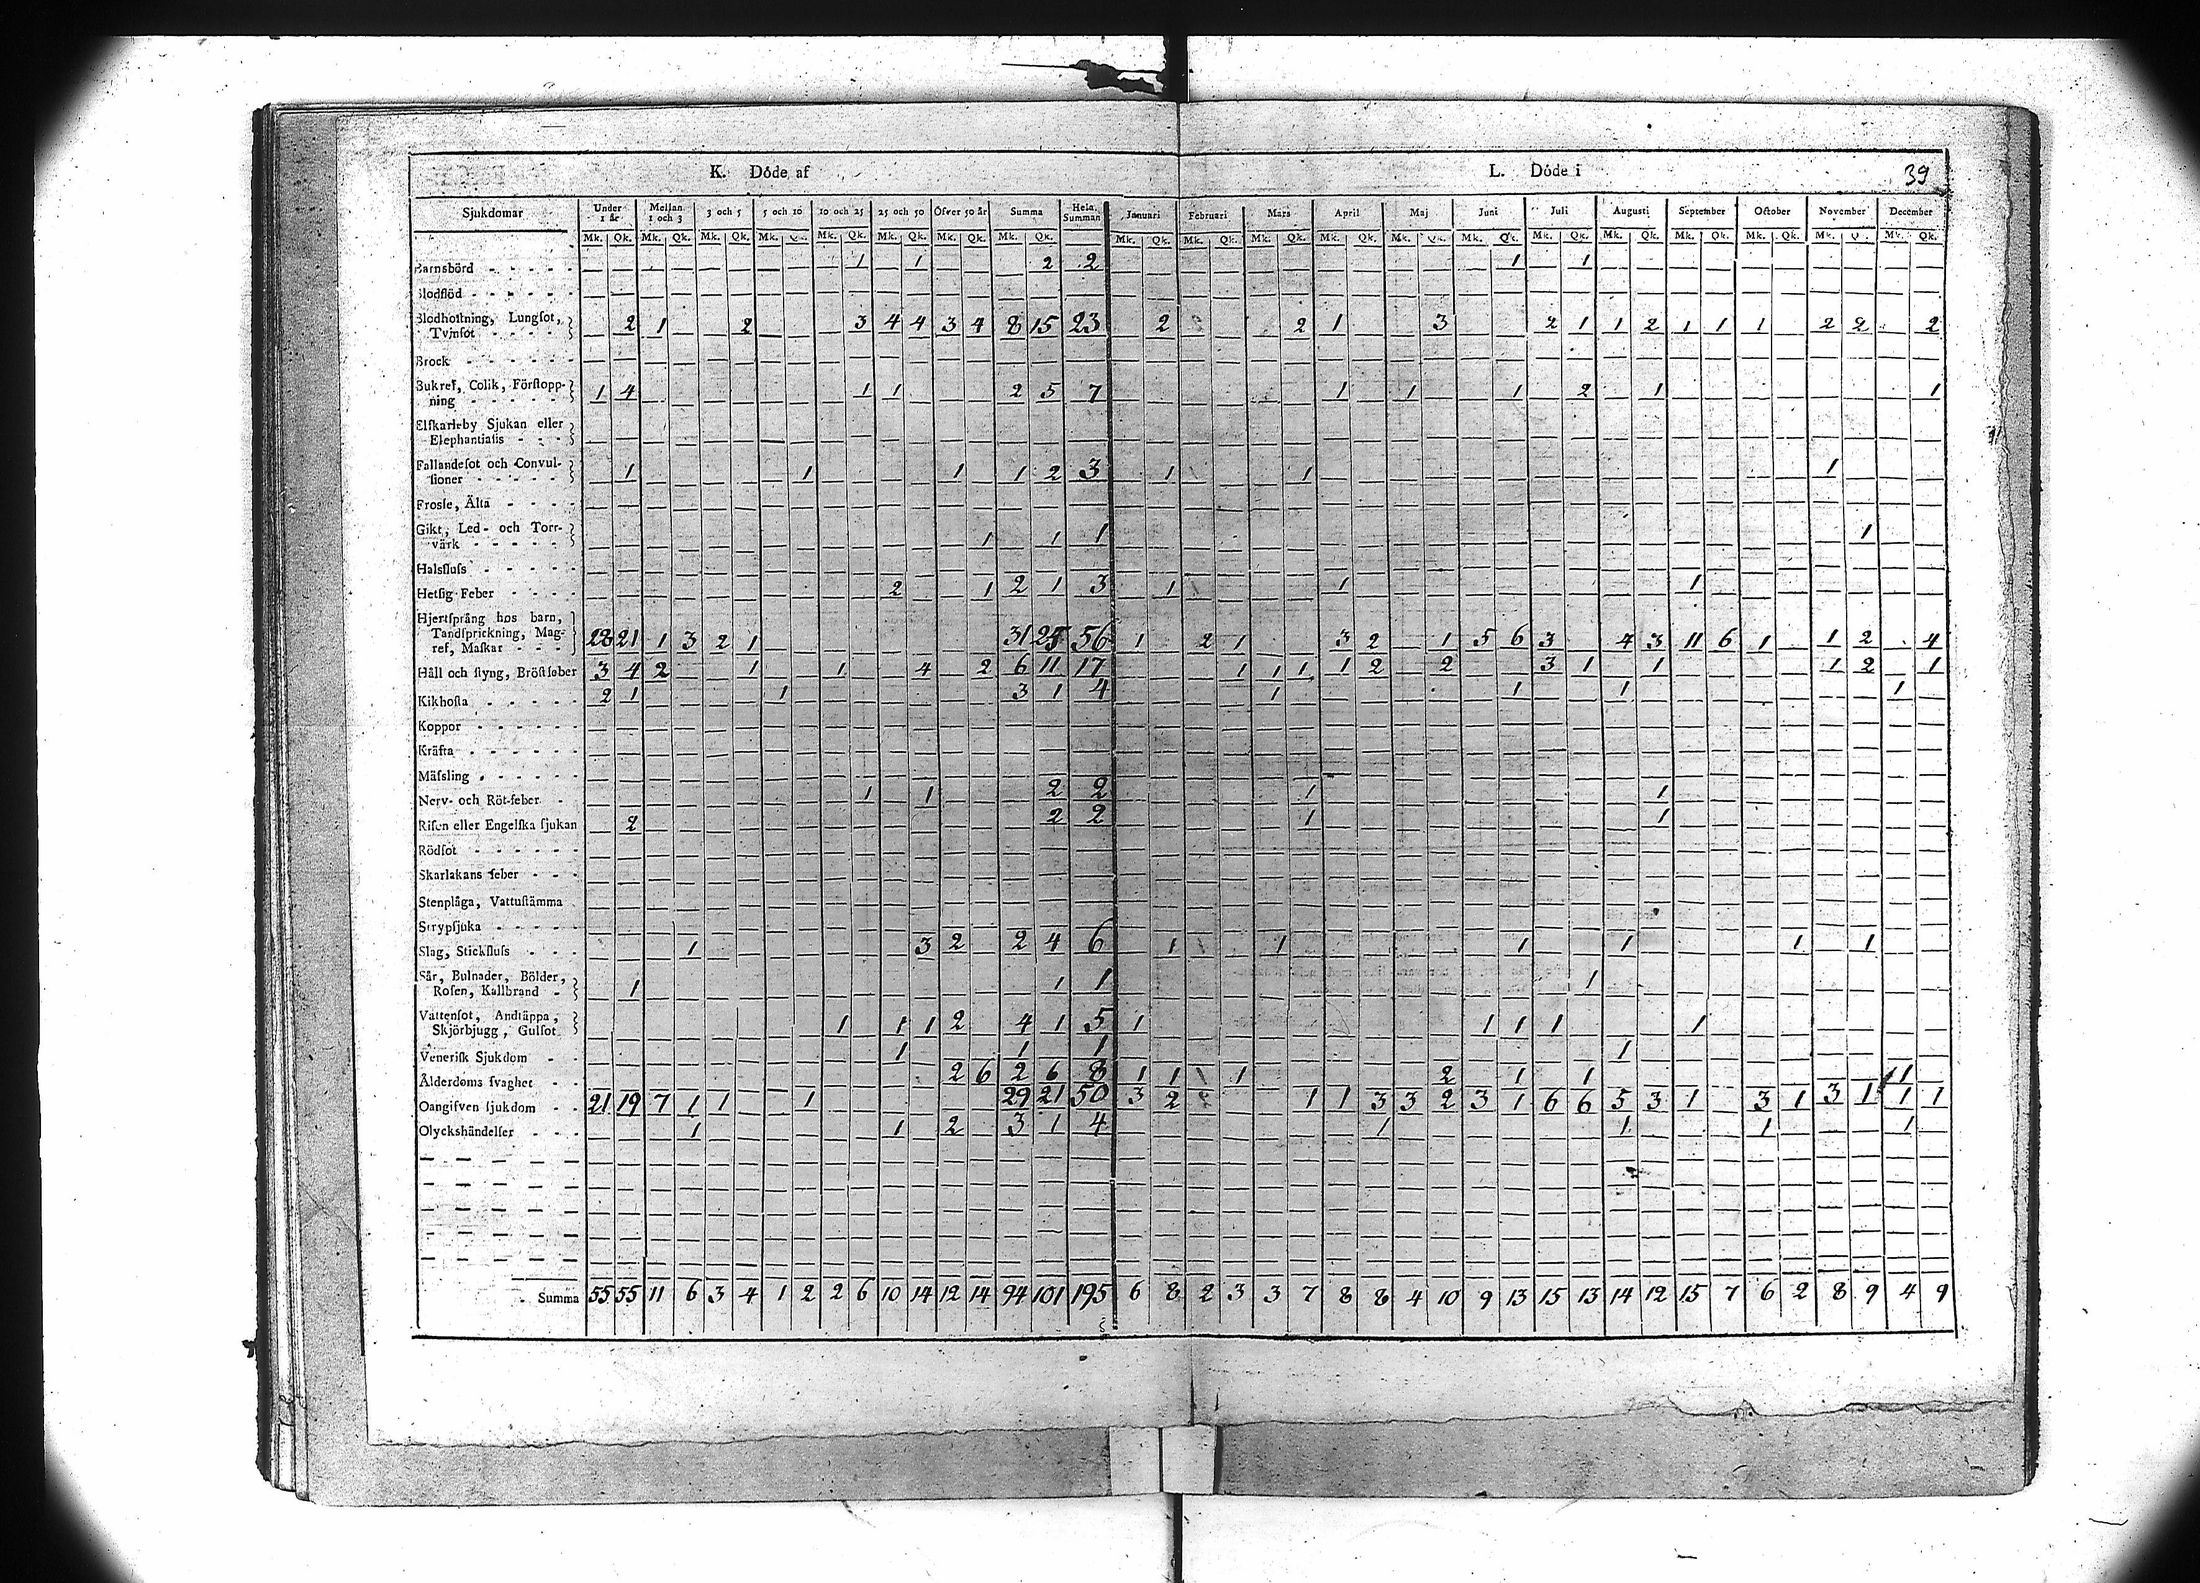 K. Döde af L. Döde i 39
Sjukdomar Under 1 år Mellan 1 och 3 3 och 5 5 och 10 10 och 25 25 och 50 Öfver 50 år Summa Hela Summan Januari Februari Mars April Maj Juni Juli Augusti September October November December
Mk. Qk. Mk. Qk. Mk. Qk. Mk. Qk. Mk. Qk. Mk. Qk. Mk. Qk. Mk. Qk. Mk. Qk. Mk. Qk. Mk. Qk. Mk. Qk. Mk. Qk. Mk. Qk. Mk. Qk. Mk. Qk. Mk. Qk. Mk. Qk. Mk. Qk. Mk. Qk.
Barnsbörd 1 1 2 2 1 1
Blodflöd
Blodhostning, Lungsot,
Tvinsot 2 1 2 3 4 4 3 4 8 15 23 2 2 1 3 2 1 1 2 1 1 1 2 2 2
Brock
Bukref, Colik, Förstopp-
ning 1 4 1 1 2 5 7 1 1 1 2 1 1
Elfkarleby Sjukan eller
Elephantiasis
Fallandesot och Convul-
sioner 1 1 1 1 2 3 1 1 1
Frossa, Älta
Gikt, Led- och Torr-
värk 1 1 1 1
Halsfluss
Hetsig Feber 2 1 2 1 3 1 1 1
Hjertsprång hos barn,
Tandsprickning, Mag-
ref, Maskar 28 21 1 3 2 1 31 25 56 1 2 1 3 2 1 5 6 3 4 3 11 6 1 1 2 4
Håll och styng, Bröstfeber 3 4 2 1 1 4 2 6 11 17 1 1 1 1 2 2 3 1 1 1 2 1
Kikhosta 2 1 1 3 1 4 1 1 1 1
Koppor
Kräfta
Mässling
Nerv- och Röt-feber 1 1 2 2 1 1
Risen eller Engelska sjukan 2 2 2 1 1
Rödsot
Skarlakans feber
Stenplåga, Vattustämma
Strypsjuka
Slag, Stickfluss 1 3 2 2 4 6 1 1 1 1 1 1
Sår, Bulnader, Bölder,
Rosen, Kallbrand 1 1 1 1
Vattensot, Andtäppa,
Skjörbjugg, Gulsot 1 1 1 2 4 1 5 1 1 1 1 1
Venerisk Sjukdom 1 1 1 1
Ålderdoms svaghet 2 6 2 6 8 1 1 1 2 1 1 1
Oangifven sjukdom 21 19 7 1 1 1 29 21 50 3 2 1 1 3 3 2 3 1 6 6 5 3 1 3 1 3 1 1 1
Olyckshändelser 1 1 2 3 1 4 1 1 1 1
Summa 55 55 11 6 3 4 1 2 2 6 10 14 12 14 94 101 195 6 8 2 3 3 7 8 8 4 10 9 13 15 13 14 12 15 7 6 2 8 9 4 9